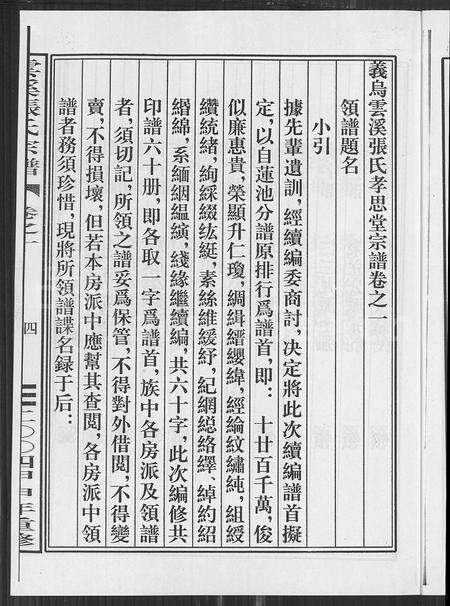 義烏雲溪張氏孝思堂宗譜卷之一
領譜題名
小引
據先輩遺訓，經續編委商討，决定將此次續編譜首擬
定，以自蓮池分譜原排行爲譜首，即： 十廿百千萬，俊
似廉惠貴，榮顯升仁瓊，綢緝縉纓緯，經綸紋繡純，組綬
纘統緒，絢綵綴紘綎，素絲維緩紓，紀網緦絡繹、綽約紹
緡綿，系緬絪緼縯，綫緣繼續編，共六十字，此次編修共
印譜六十册，即各取一字爲譜首，族中各房派及領譜
者，須切記，所領之譜妥爲保管，不得對外借閲，不得變
賣，不得損壞，但若本房派中應幫其查閲，各房派中領
譜者務須珍惜，現將所領譜諜名録于后：
雲溪張氏宗譜
卷之一
四
二〇〇四甲申年重修